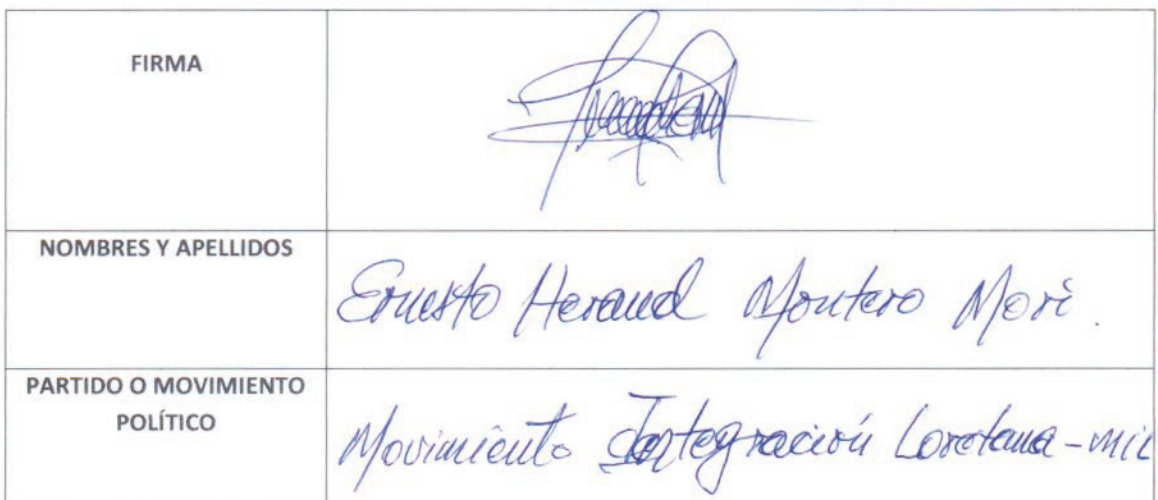 FIRMA
NOMBRES Y APELLIDOS
Ernesto Heraud Montero Mori.
PARTIDO O MOVIMIENTO
POLÍTICO
Movimiento Integración Loretana - mil